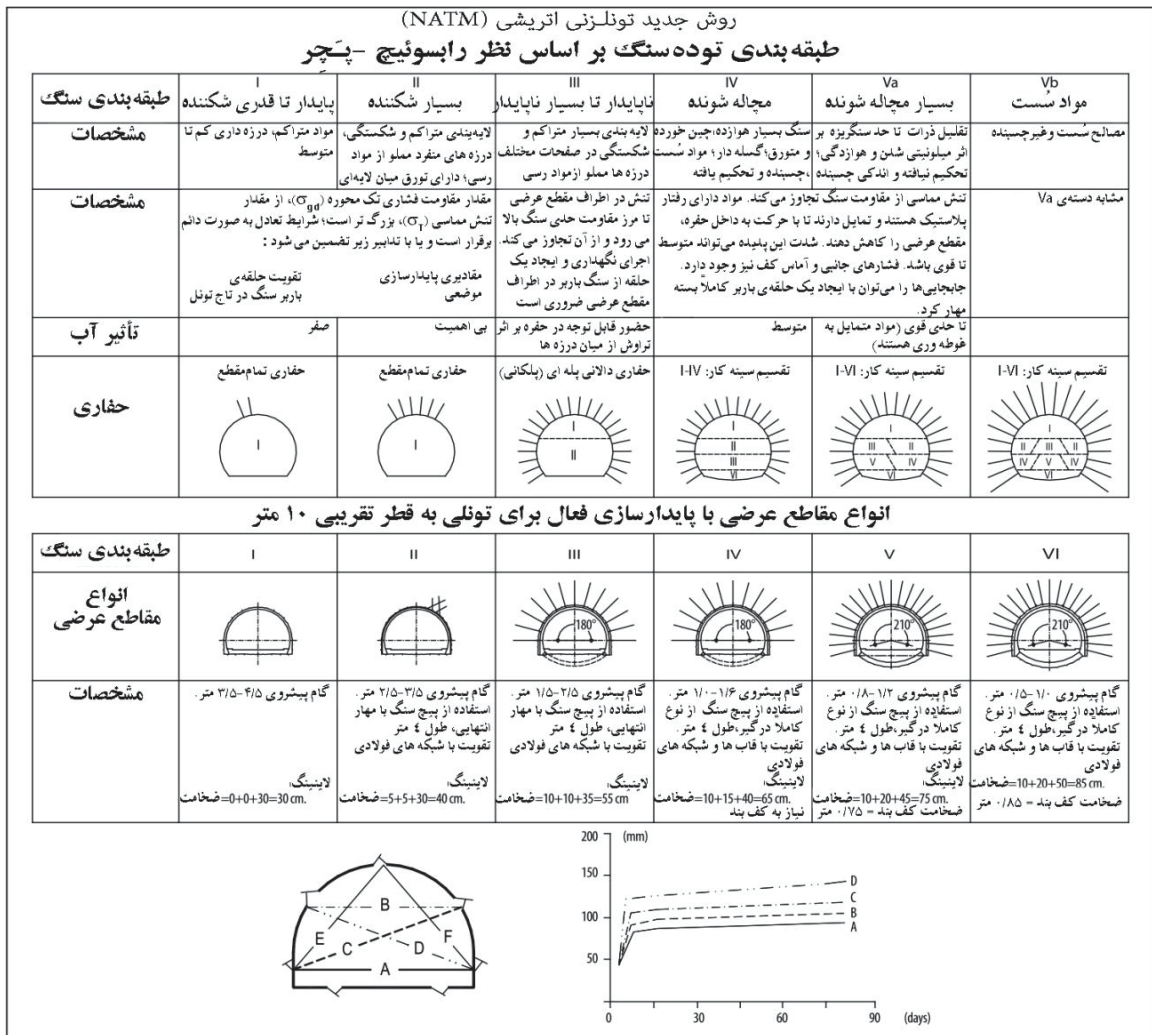 روش جدید تونلزنی اتریشی (NATM)
طبقه بندی توده سنگ بر اساس نظر رابسوئیچ -پَچِر
طبقه بندی سنگ
I
پایدار تا قدری شکننده
II
بسیار شکننده
III
ناپایدار تا بسیار ناپایدار
IV
مچاله شونده
Va
بسیار مچاله شونده
Vb
مواد سُست
مشخصات
مواد متراکم، درزه داری کم تا
متوسط
لایه‌بندی متراکم و شکستگی،
درزه های منفرد مملو از مواد
رسی؛ دارای تورق میان لایه‌ای
لایه بندی بسیار متراکم و
شکستگی در صفحات مختلف
درزه ها مملو ازمواد رسی
سنگ بسیار هوازده،چین خورده
و متورق؛گسله دار؛ مواد سُست
،چسبنده و تحکیم یافته
تقلیل ذرات تا حد سنگریزه بر
اثر میلونیتی شدن و هوازدگی؛
تحکیم نیافته و اندکی چسبنده
مصالح سُست وغیرچسبنده
مشخصات
مقدار مقاومت فشاری تک محوره (σgd)، از مقدار
تنش مماسی (σT)، بزرگ تر است؛ شرایط تعادل به صورت دائم
برقرار است و یا با تدابیر زیر تضمین می شود :
تقویت حلقه‌ی
باربر سنگ در تاج تونل
مقادیری پایدارسازی
موضعی
تنش در اطراف مقطع عرضی
تا مرز مقاومت حدی سنگ بالا
می رود و از آن تجاوز می‌کند.
اجرای نگهداری و ایجاد یک
حلقه از سنگ باربر در اطراف
مقطع عرضی ضروری است
تنش مماسی از مقاومت سنگ تجاوز می‌کند. مواد دارای رفتار
پلاستیک هستند و تمایل دارند تا با حرکت به داخل حفره،
مقطع عرضی را کاهش دهند. شدت این پدیده می‌تواند متوسط
تا قوی باشد. فشارهای جانبی و آماس کف نیز وجود دارد.
جابجایی‌ها را می‌توان با ایجاد یک حلقه‌ی باربر کاملاً بسته
مهار کرد.
مشابه دسته‌ی Va
تأثیر آب
صفر
بی اهمیت
حضور قابل توجه در حفره بر اثر
تراوش از میان درزه ها
متوسط
تا حدی قوی (مواد متمایل به
غوطه وری هستند)
حفاری
حفاری تمام‌مقطع
I
حفاری تمام‌مقطع
I
حفاری دالانی پله ای (پلکانی)
I
II
تقسیم سینه کار: I-IV
I
II
III
VI
تقسیم سینه کار: I-VI
I
III II
V IV
VI
تقسیم سینه کار: I-VI
I
II III II
IV V IV
VI
انواع مقاطع عرضی با پایدارسازی فعال برای تونلی به قطر تقریبی ۱۰ متر
طبقه بندی سنگ
I
II
III
IV
V
VI
انواع
مقاطع عرضی
180°
180°
210°
210°
مشخصات
گام پیشروی ۴/۵-۳/۵ متر.
لاینینگ:
ضخامت=0+0+30=30 cm.
گام پیشروی ۳/۵-۲/۵ متر.
استفاده از پیچ سنگ با مهار
انتهایی، طول ٤ متر
تقویت با شبکه های فولادی
لاینینگ:
ضخامت=5+5+30=40 cm.
گام پیشروی ۲/۵-۱/۵ متر.
استفاده از پیچ سنگ با مهار
انتهایی، طول ٤ متر
تقویت با شبکه های فولادی
لاینینگ:
ضخامت=10+10+35=55 cm
گام پیشروی ۱/۶-۱/۰ متر.
استفاده از پیچ سنگ از نوع
کاملاً درگیر،طول ٤ متر.
تقویت با قاب ها و شبکه های
فولادی
لاینینگ:
ضخامت=10+15+40=65 cm.
نیاز به کف بند
گام پیشروی ۱/۲-۰/۸ متر.
استفاده از پیچ سنگ از نوع
کاملاً درگیر،طول ٤ متر.
تقویت با قاب ها و شبکه های
فولادی
لاینینگ:
ضخامت=10+20+45=75 cm.
ضخامت کف بند = ۰/۷۵ متر
گام پیشروی ۱/۰-۰/۵ متر.
استفاده از پیچ سنگ از نوع
کاملاً درگیر،طول ٤ متر.
تقویت با قاب ها و شبکه های
فولادی
ضخامت=10+20+50=85 cm.
ضخامت کف بند = ۰/۸۵ متر
B
E
C
D
F
A
200 (mm)
150
100
50
0
D
C
B
A
0 30 60 90 (days)